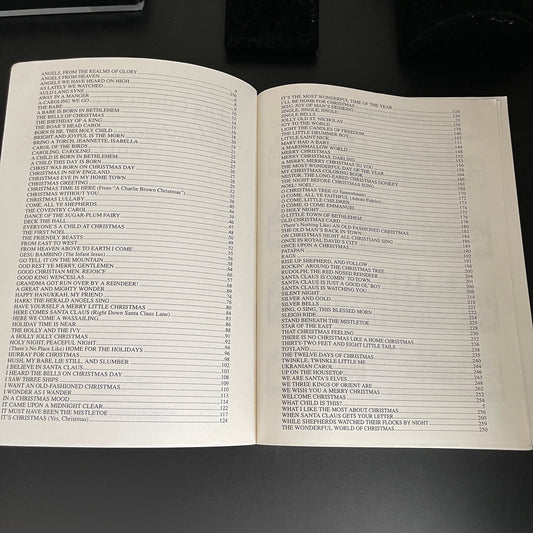 ANGELS, FROM THE REALMS OF GLORY
ANGELS FROM HEAVEN
ANGELS WE HAVE HEARD ON HIGH
AS LATELY WE WATCHED
AULD LANG SYNE
AWAY IN A MANGER
A-CAROLING WE GO
THE BABE
A BABE IS BORN IN BETHLEHEM
THE BELLS OF CHRISTMAS
THE BIRTHDAY OF A KING
THE BOAR'S HEAD CAROL
BORN IS HE, THIS HOLY CHILD
BRIGHT AND JOYFUL IS THE MORN
BRING A TORCH, JEANNETTE, ISABELLA
CAROL OF THE BIRDS
CAROLING, CAROLING
A CHILD IS BORN IN BETHLEHEM
A CHILD THIS DAY IS BORN
CHRIST WAS BORN ON CHRISTMAS DAY
CHRISTMAS IN NEW ENGLAND
CHRISTMAS EVE IN MY HOME TOWN
CHRISTMAS GREETING
CHRISTMAS TIME IS HERE (From "A Charlie Brown Christmas")
CHRISTMAS WITHOUT YOU
CHRISTMAS LULLABY
COME, ALL YE SHEPHERDS
THE COVENTRY CAROL
DANCE OF THE SUGAR-PLUM FAIRY
DECK THE HALL
EVERYONE'S A CHILD AT CHRISTMAS
THE FIRST NOEL
THE FRIENDLY BEASTS
FROM EAST TO WEST
FROM HEAVEN ABOVE TO EARTH I COME
GESU BAMBINO (The Infant Jesus)
GO TELL IT ON THE MOUNTAIN
GOD REST YE MERRY, GENTLEMEN
GOOD CHRISTIAN MEN, REJOICE
GOOD KING WENCESLAS
GRANDMA GOT RUN OVER BY A REINDEER!
A GREAT AND MIGHTY WONDER
HAPPY HANUKKAH, MY FRIEND
HARK! THE HERALD ANGELS SING
HAVE YOURSELF A MERRY LITTLE CHRISTMAS
HERE COMES SANTA CLAUS (Right Down Santa Claus Lane)
HERE WE COME A-WASSAILING
HOLIDAY TIME IS NEAR
THE HOLLY AND THE IVY
A HOLLY JOLLY CHRISTMAS
HOLY NIGHT, PEACEFUL NIGHT
(There's No Place Like) HOME FOR THE HOLIDAYS
HURRAY FOR CHRISTMAS
HUSH, MY BABE, LIE STILL, AND SLUMBER
I BELIEVE IN SANTA CLAUS
I HEARD THE BELLS ON CHRISTMAS DAY
I SAW THREE SHIPS
I WANT AN OLD-FASHIONED CHRISTMAS
I WONDER AS I WANDER
IN A CHRISTMAS MOOD 114
IT CAME UPON A MIDNIGHT CLEAR 122
IT MUST HAVE BEEN THE MISTLETOE 117
IT'S CHRISTMAS (Yes, Christmas) 124
IT'S THE MOST WONDERFUL TIME OF THE YEAR
I'LL BE HOME FOR CHRISTMAS
JESU, JOY OF MAN'S DESIRING
JINGLE, JINGLE, JINGLE
JINGLE BELLS
JOLLY OLD ST. NICHOLAS
JOY TO THE WORLD
LIGHT THE CANDLES OF FREEDOM
THE LITTLE DRUMMER BOY
LITTLE SAINT NICK
MARY HAD A BABY
A MARSHMALLOW WORLD
MERRY CHRISTMAS
MERRY CHRISTMAS, DARLING
A MERRY, MERRY CHRISTMAS TO YOU
THE MOST WONDERFUL DAY OF THE YEAR
MY CHRISTMAS COLORING BOOK
NESTOR, THE LONG-EARED CHRISTMAS DONKEY
THE NIGHT BEFORE CHRISTMAS SONG
NOEL! NOEL!
O CHRISTMAS TREE (O Tannenbaum)
O COME, ALL YE FAITHFUL (Adeste Fideles)
O COME, LITTLE CHILDREN
O COME, O COME EMMANUEL
O HOLY NIGHT
O LITTLE TOWN OF BETHLEHEM
OLD SANTA CAROL
(There's Nothing Like) AN OLD FASHIONED CHRISTMAS
THE OLD MAN'S BACK IN TOWN
ON CHRISTMAS NIGHT ALL CHRISTIANS SING
ONCE IN ROYAL DAVID'S CITY
ONCE UPON A CHRISTMAS
PATAPAN
RAGS
RISE UP SHEPHERD, AND FOLLOW
ROCKIN' AROUND THE CHRISTMAS TREE
RUDOLPH, THE RED-NOSED REINDEER
SANTA CLAUS IS COMIN' TO TOWN
SANTA CLAUS IS JUST A GOOD OL' BOY
SANTA CLAUS IS WATCHING YOU
SILENT NIGHT
SILVER AND GOLD
SILVER BELLS
SING, O SING, THIS BLESSED MORN
SLEIGH RIDE
STAND BENEATH THE MISTLETOE
STAR OF THE EAST
THAT CHRISTMAS FEELING
THERE IS NO CHRISTMAS LIKE A HOME CHRISTMAS
THIRTY-TWO FEET AND EIGHT LITTLE TAILS
TOYLAND
THE TWELVE DAYS OF CHRISTMAS
TWINKLE, TWINKLE LITTLE ME
UKRANIAN CAROL
UP ON THE HOUSETOP
WE ARE SANTA'S ELVES
WE THREE KINGS OF ORIENT ARE
WE WISH YOU A MERRY CHRISTMAS
WELCOME CHRISTMAS
WHAT CHILD IS THIS?
WHAT I LIKE THE MOST ABOUT CHRISTMAS
WHEN SANTA CLAUS GETS YOUR LETTER 256
WHILE SHEPHERDS WATCHED THEIR FLOCKS BY NIGHT 259
THE WONDERFUL WORLD OF CHRISTMAS 250